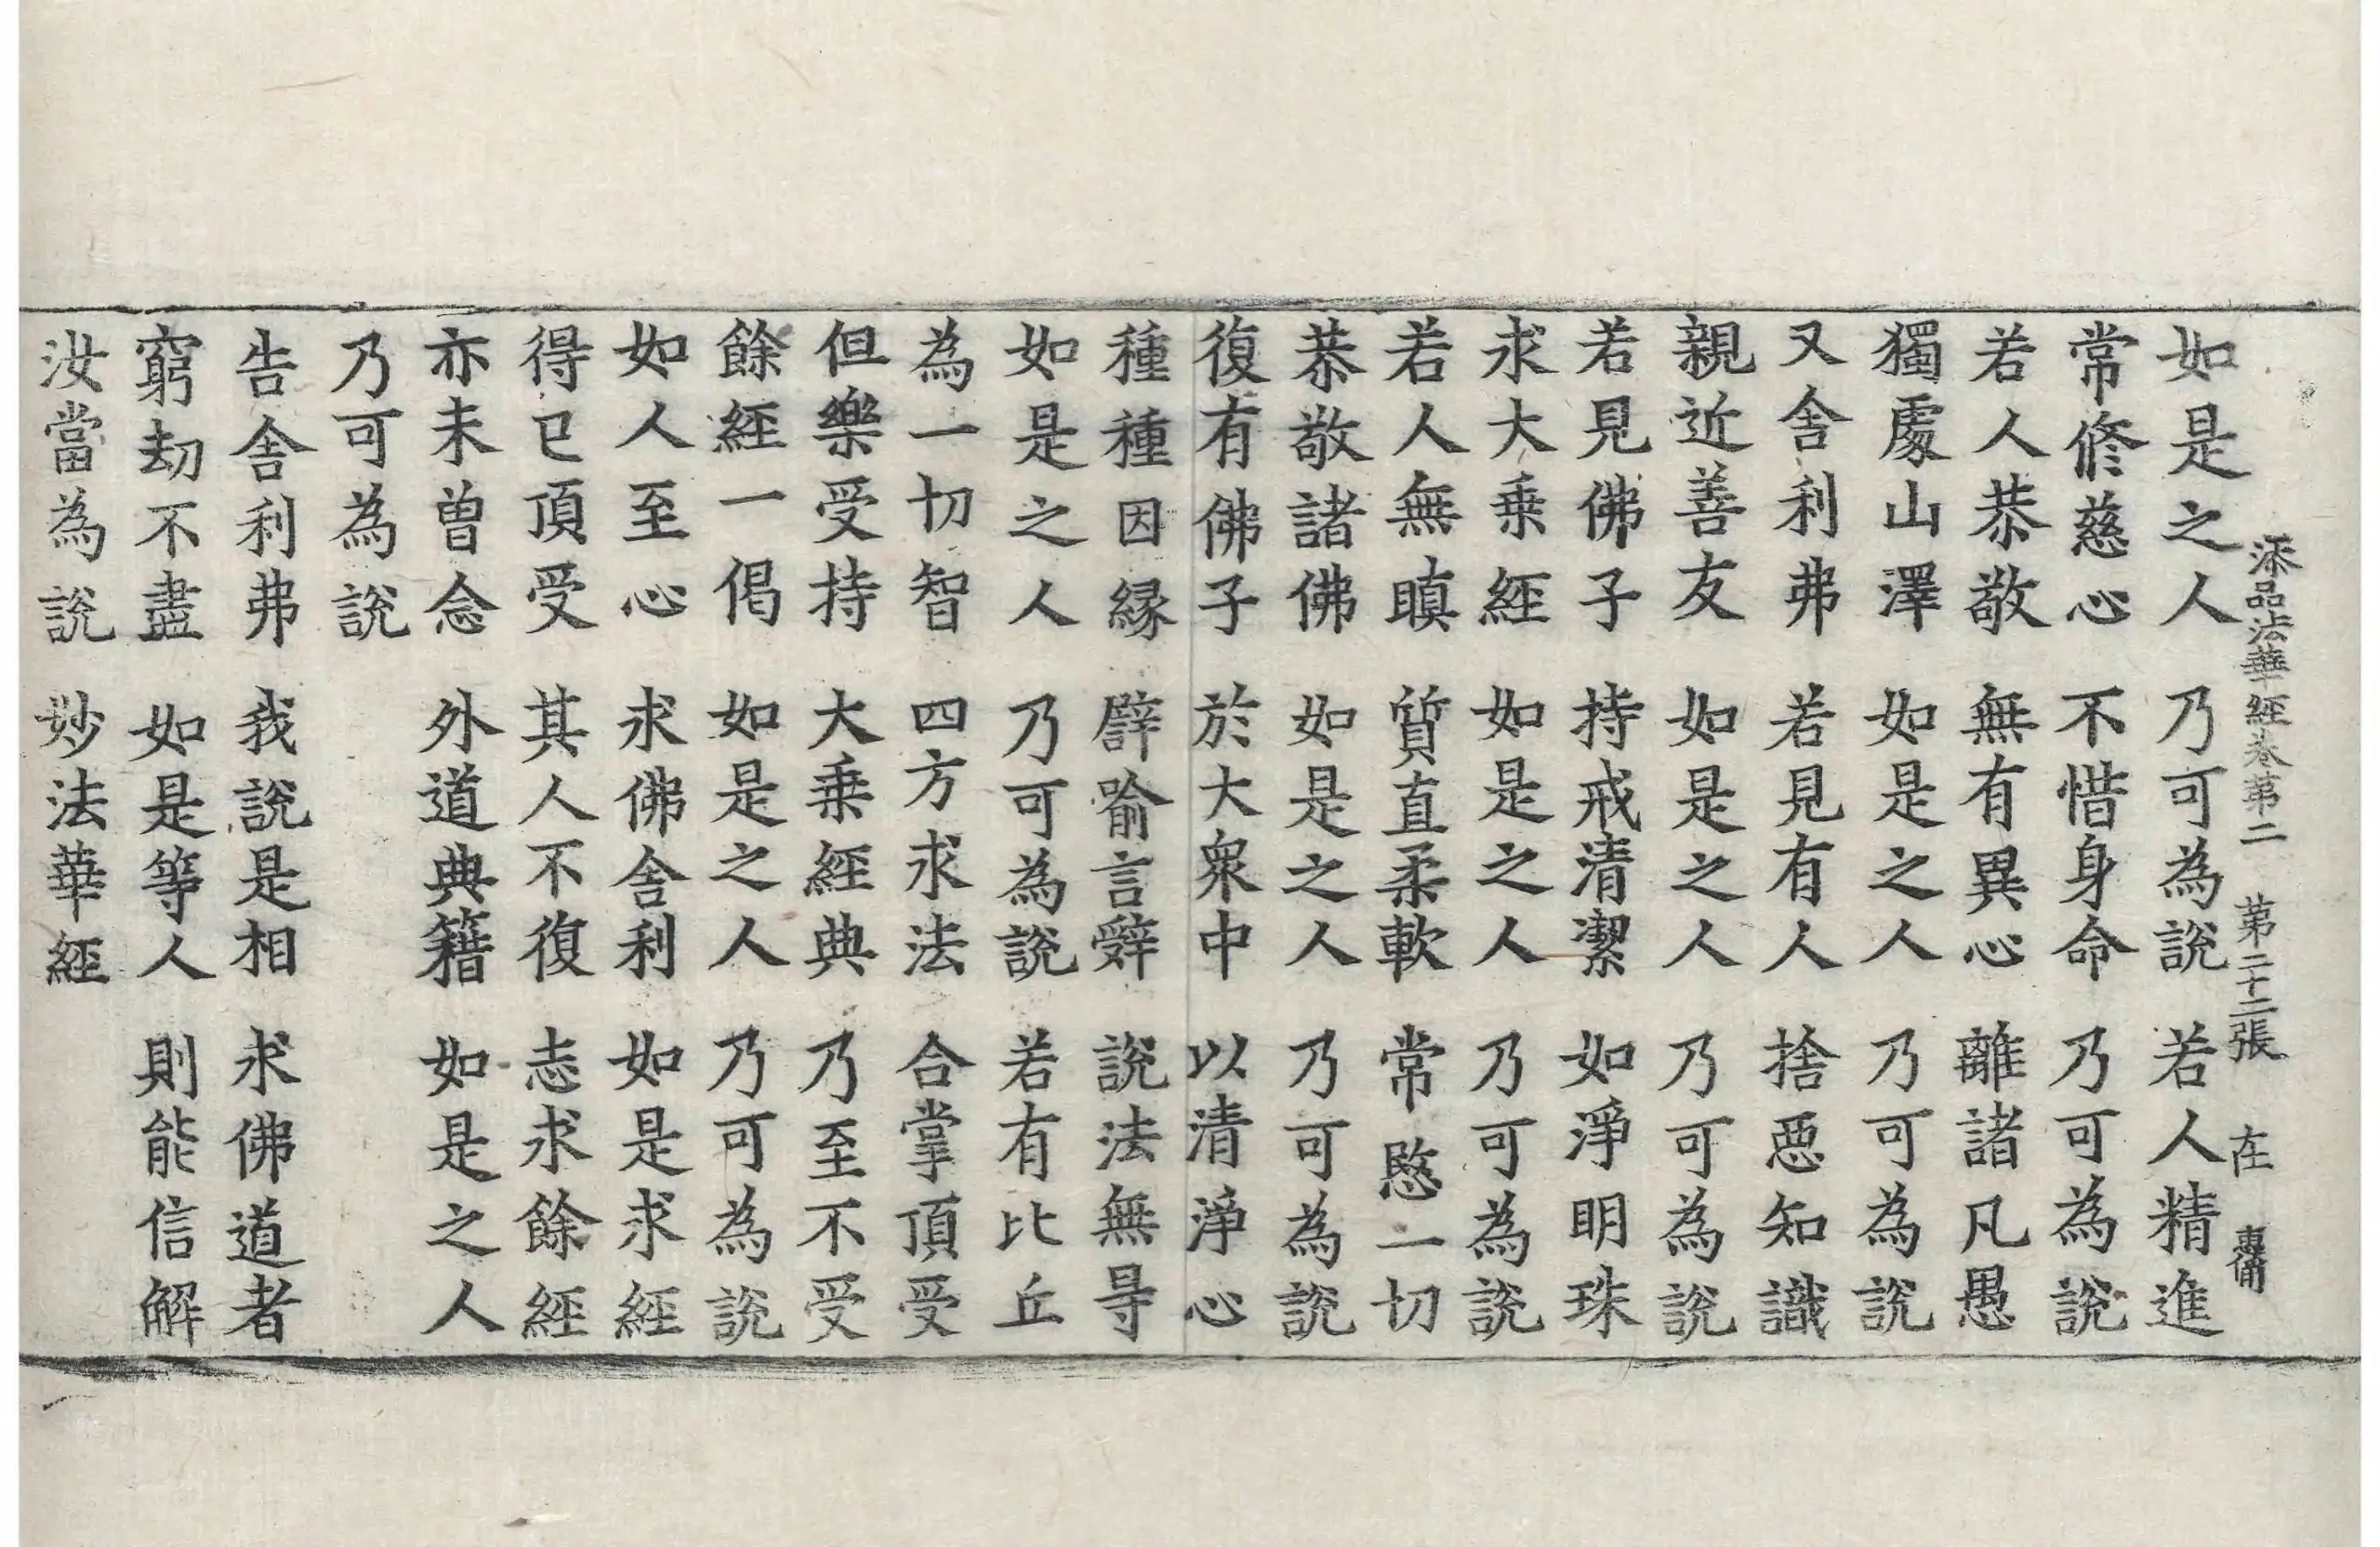 添品法華經卷第二 第二十二張 在
如是之人 乃可為說 若人精進
常修慈心 不惜身命 乃可為說
若人恭敬 無有異心 離諸凡愚
獨處山澤 如是之人 乃可為說
又舍利弗 若見有人 捨惡知識
親近善友 如是之人 乃可為說
若見佛子 持戒清潔 如淨明珠
求大乗經 如是之人 乃可為說
若人無瞋 質直柔軟 常愍一切
恭敬諸佛 如是之人 乃可為說
復有佛子 於大衆中 以清淨心
種種因緣 譬喻言辭 說法無㝵
如是之人 乃可為說 若有比丘
為一切智 四方求法 合掌頂受
但樂受持 大乗經典 乃至不受
餘經一偈 如是之人 乃可為說
如人至心 求佛舍利 如是求經
得已頂受 其人不復 志求餘經
亦未曾念 外道典籍 如是之人
乃可為說
告舍利弗 我說是相 求佛道者
窮劫不盡 如是等人 則能信解
汝當為說 妙法華經